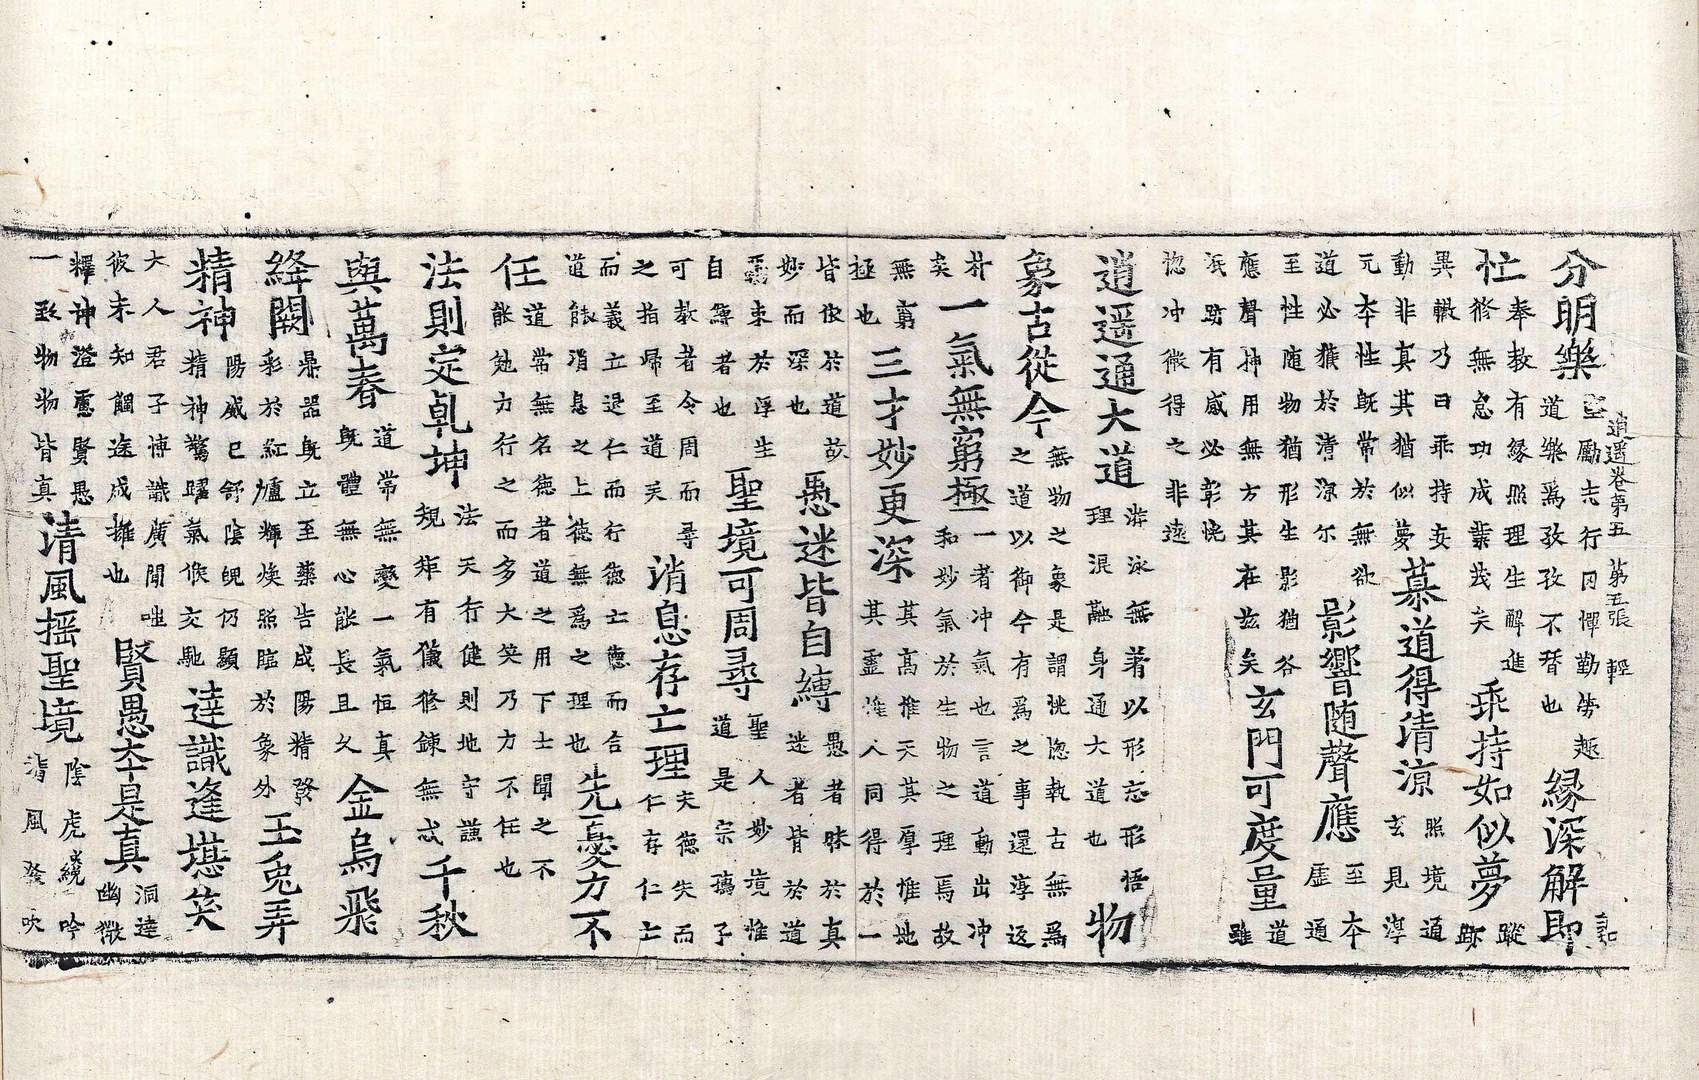 逍遥卷第五 第五張 輕
分明樂
空勵志行日憚勤勞趣
道樂爲孜孜不暜也
縁深解即
忙
奉教有縁照理生解進
修無怠功成業茂矣
乖持如似夢
蹤
跡
異轍乃曰乖持妄
動非真其猶似夢
慕道得清凉
照境通
玄見淳
元本性既常於無欲
道必獲於清凉尓
影響随聲應
至本
虚通
至性随物猶形生影猶谷
應聲抻用無方其在兹矣
玄門可度量
道
雖
眇有感必彰恍
惚冲微得之非遠
逍遥通大道
游泳無著以形忘形悟
理混融身通大道也
物
象古從今
無物之象是謂恍惚執古無爲
之道以御今有爲之事還淳返
朴
矣
一氣無窮極
一者冲氣也言道動出冲
和妙氣於生物之理焉故
無窮
極也
三才妙更深
其高惟天其厚惟地
其靈惟人同得於一
皆依於道故
妙而深也
愚迷皆自縛
愚者昧於真
迷者皆於道
焉束於浮生
自縛者也
聖境可周尋
聖人妙境惟
道是宗孺子
可教者令周而尋
之指歸至道矣
消息存亡理
夫德失而
仁存仁亡
而義立退仁而行德亡德而合
道能消息之上德無爲之理也
先憂方不
任
道常無名德者道之用下士聞之不
能勉力行之而多大笑乃方不任也
法則定乹坤
法天行健則地守謙
規矩有儀修鍊無忒
千秋
與萬春
道常無變一氣恒真
既體無心能長且久
金烏飛
絳闕
鼎器既立至藥告成陽精發
彩於紅爐輝煥照臨於象外
玉兎弄
精神
陽威已舒陰魄仍顯
精神驚躍氣候交馳
達識逢堪笑
大人君子博識廣聞咄
彼未知觸途成擁也
賢愚夲是真
洞達
幽微
釋神澄慮賢愚
一致物物皆真
清風揺聖境
陰虎繞吟
清風發吹